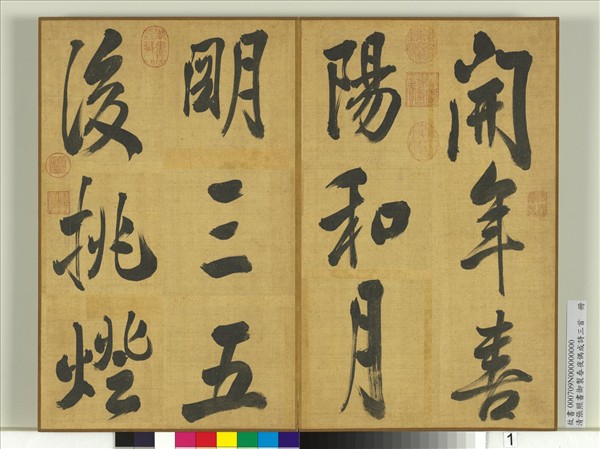 開年喜
陽和月
朙三五
後挑燈
故書000709N000000000
清張照書御製春夜偶成詩三首 冊
1